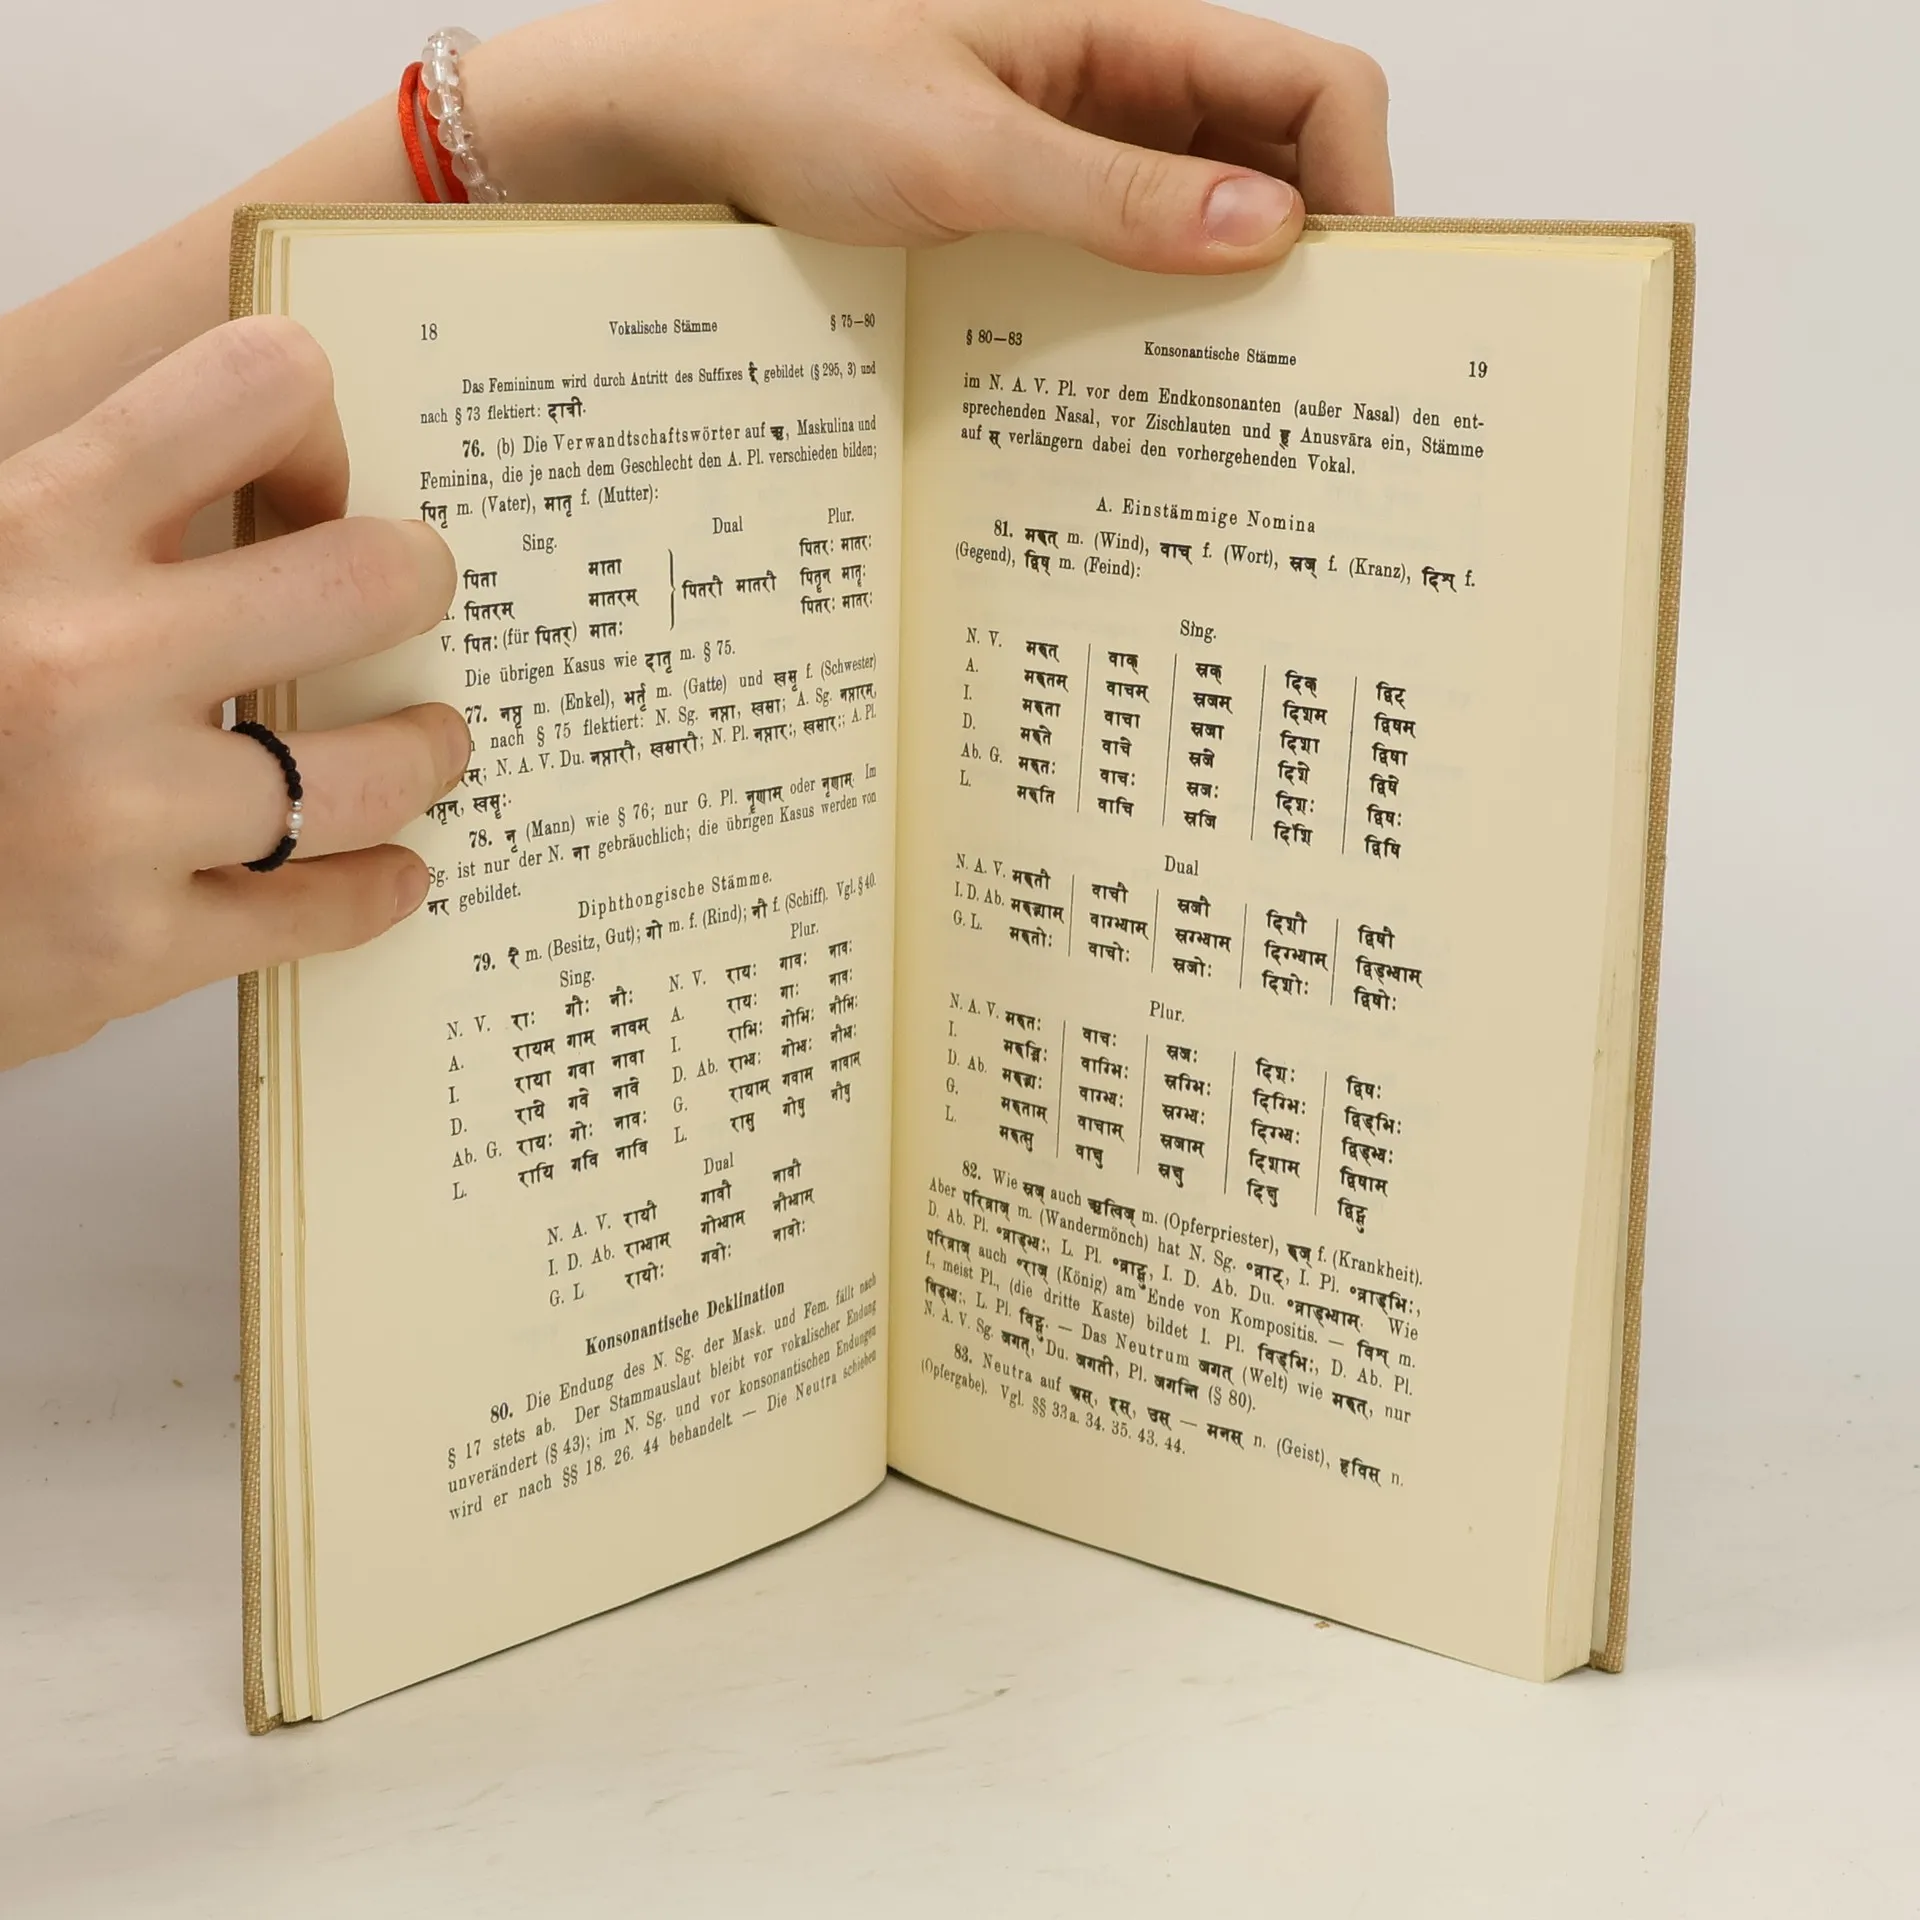 18 Vokalische Stämme § 75–80
Das Femininum wird durch Antritt des Suffixes ई gebildet (§ 295, 3) und
nach § 73 flektiert: दात्री.
76. (b) Die Verwandtschaftswörter auf ऋ, Maskulina und
Feminina, die je nach dem Geschlecht den A. Pl. verschieden bilden;
पितृ m. (Vater), मातृ f. (Mutter):
Sing. Dual Plur.
पिता माता पितरः मातरः
पितरम् मातरम् पितरौ मातरौ पितॄन् मातॄः
V. पितः (für पितर्) मातः पितरः मातरः
Die übrigen Kasus wie दातृ m. § 75.
77. नप्तृ m. (Enkel), भर्तृ m. (Gatte) und स्वसृ f. (Schwester)
nach § 75 flektiert: N. Sg. नप्ता, स्वसा; A. Sg. नप्तारम्,
N. A. V. Du. नप्तारौ, स्वसारौ; N. Pl. नप्तारः, स्वसारः; A. Pl.
नप्तॄन्, स्वसॄः.
78. नृ (Mann) wie § 76; nur G. Pl. नृणाम् oder नॄणाम्. Im
Sg. ist nur der N. ना gebräuchlich; die übrigen Kasus werden von
नर gebildet.
Diphthongische Stämme.
79. रै m. (Besitz, Gut); गो m. f. (Rind); नौ f. (Schiff). Vgl. § 40.
Sing. Plur.
N. V. राः गौः नौः N. V. रायः गावः नावः
A. रायम् गाम् नावम् A. रायः गाः नावः
I. राया गवा नावा I. राभिः गोभिः नौभिः
D. राये गवे नावे D. Ab. राभ्यः गोभ्यः नौभ्यः
Ab. G. रायः गोः नावः G. रायाम् गवाम् नावाम्
L. रायि गवि नावि L. रासु गोषु नौषु
Dual
N. A. V. रायौ गावौ नावौ
I. D. Ab. राभ्याम् गोभ्याम् नौभ्याम्
G. L रायोः गवोः नावोः
Konsonantische Deklination
80. Die Endung des N. Sg. der Mask. und Fem. fällt nach
§ 17 stets ab. Der Stammauslaut bleibt vor vokalischer Endung
unverändert (§ 43); im N. Sg. und vor konsonantischen Endungen
wird er nach §§ 18. 26. 44 behandelt. — Die Neutra schieben
§ 80–83 Konsonantische Stämme 19
im N. A. V. Pl. vor dem Endkonsonanten (außer Nasal) den ent-
sprechenden Nasal, vor Zischlauten und ह् Anusvāra ein, Stämme
auf स् verlängern dabei den vorhergehenden Vokal.
A. Einstämmige Nomina
81. मरुत् m. (Wind), वाच् f. (Wort), स्रज् f. (Kranz), दिश् f.
(Gegend), द्विष् m. (Feind):
Sing.
N. V. मरुत् वाक् स्रक् दिक् द्विट्
A. मरुतम् वाचम् स्रजम् दिशम् द्विषम्
I. मरुता वाचा स्रजा दिशा द्विषा
D. मरुते वाचे स्रजे दिशे द्विषे
Ab. G. मरुतः वाचः स्रजः दिशः द्विषः
L. मरुति वाचि स्रजि दिशि द्विषि
Dual
N. A. V. मरुतौ वाचौ स्रजौ दिशौ द्विषौ
I. D. Ab. मरुद्भ्याम् वाग्भ्याम् स्रग्भ्याम् दिग्भ्याम् द्विड्भ्याम्
G. L. मरुतोः वाचोः स्रजोः दिशोः द्विषोः
Plur.
N. A. V. मरुतः वाचः स्रजः दिशः द्विषः
I. मरुद्भिः वाग्भिः स्रग्भिः दिग्भिः द्विड्भिः
D. Ab. मरुद्भ्यः वाग्भ्यः स्रग्भ्यः दिग्भ्यः द्विड्भ्यः
G. मरुताम् वाचाम् स्रजाम् दिशाम् द्विषाम्
L. मरुत्सु वाक्षु स्रक्षु दिक्षु द्विट्सु
82. Wie स्रज् auch ऋत्विज् m. (Opferpriester), रुज् f. (Krankheit).
Aber परिव्राज् m. (Wandermönch) hat N. Sg. °व्राट्, I. Pl. °व्राड्भिः,
D. Ab. Pl. °व्राड्भ्यः, L. Pl. °व्राट्सु, I. D. Ab. Du. °व्राड्भ्याम्. Wie
परिव्राज् auch °राज् (König) am Ende von Kompositis. — विश् m.
f., meist Pl., (die dritte Kaste) bildet I. Pl. विड्भिः, D. Ab. Pl.
विड्भ्यः, L. Pl. विट्सु. — Das Neutrum जगत् (Welt) wie मरुत्, nur
N. A. V. Sg. जगत्, Du. जगती, Pl. जगन्ति (§ 80).
83. Neutra auf अस्, इस्, उस् — मनस् n. (Geist), हविस् n.
(Opfergabe). Vgl. §§ 33a. 34. 35. 43. 44.